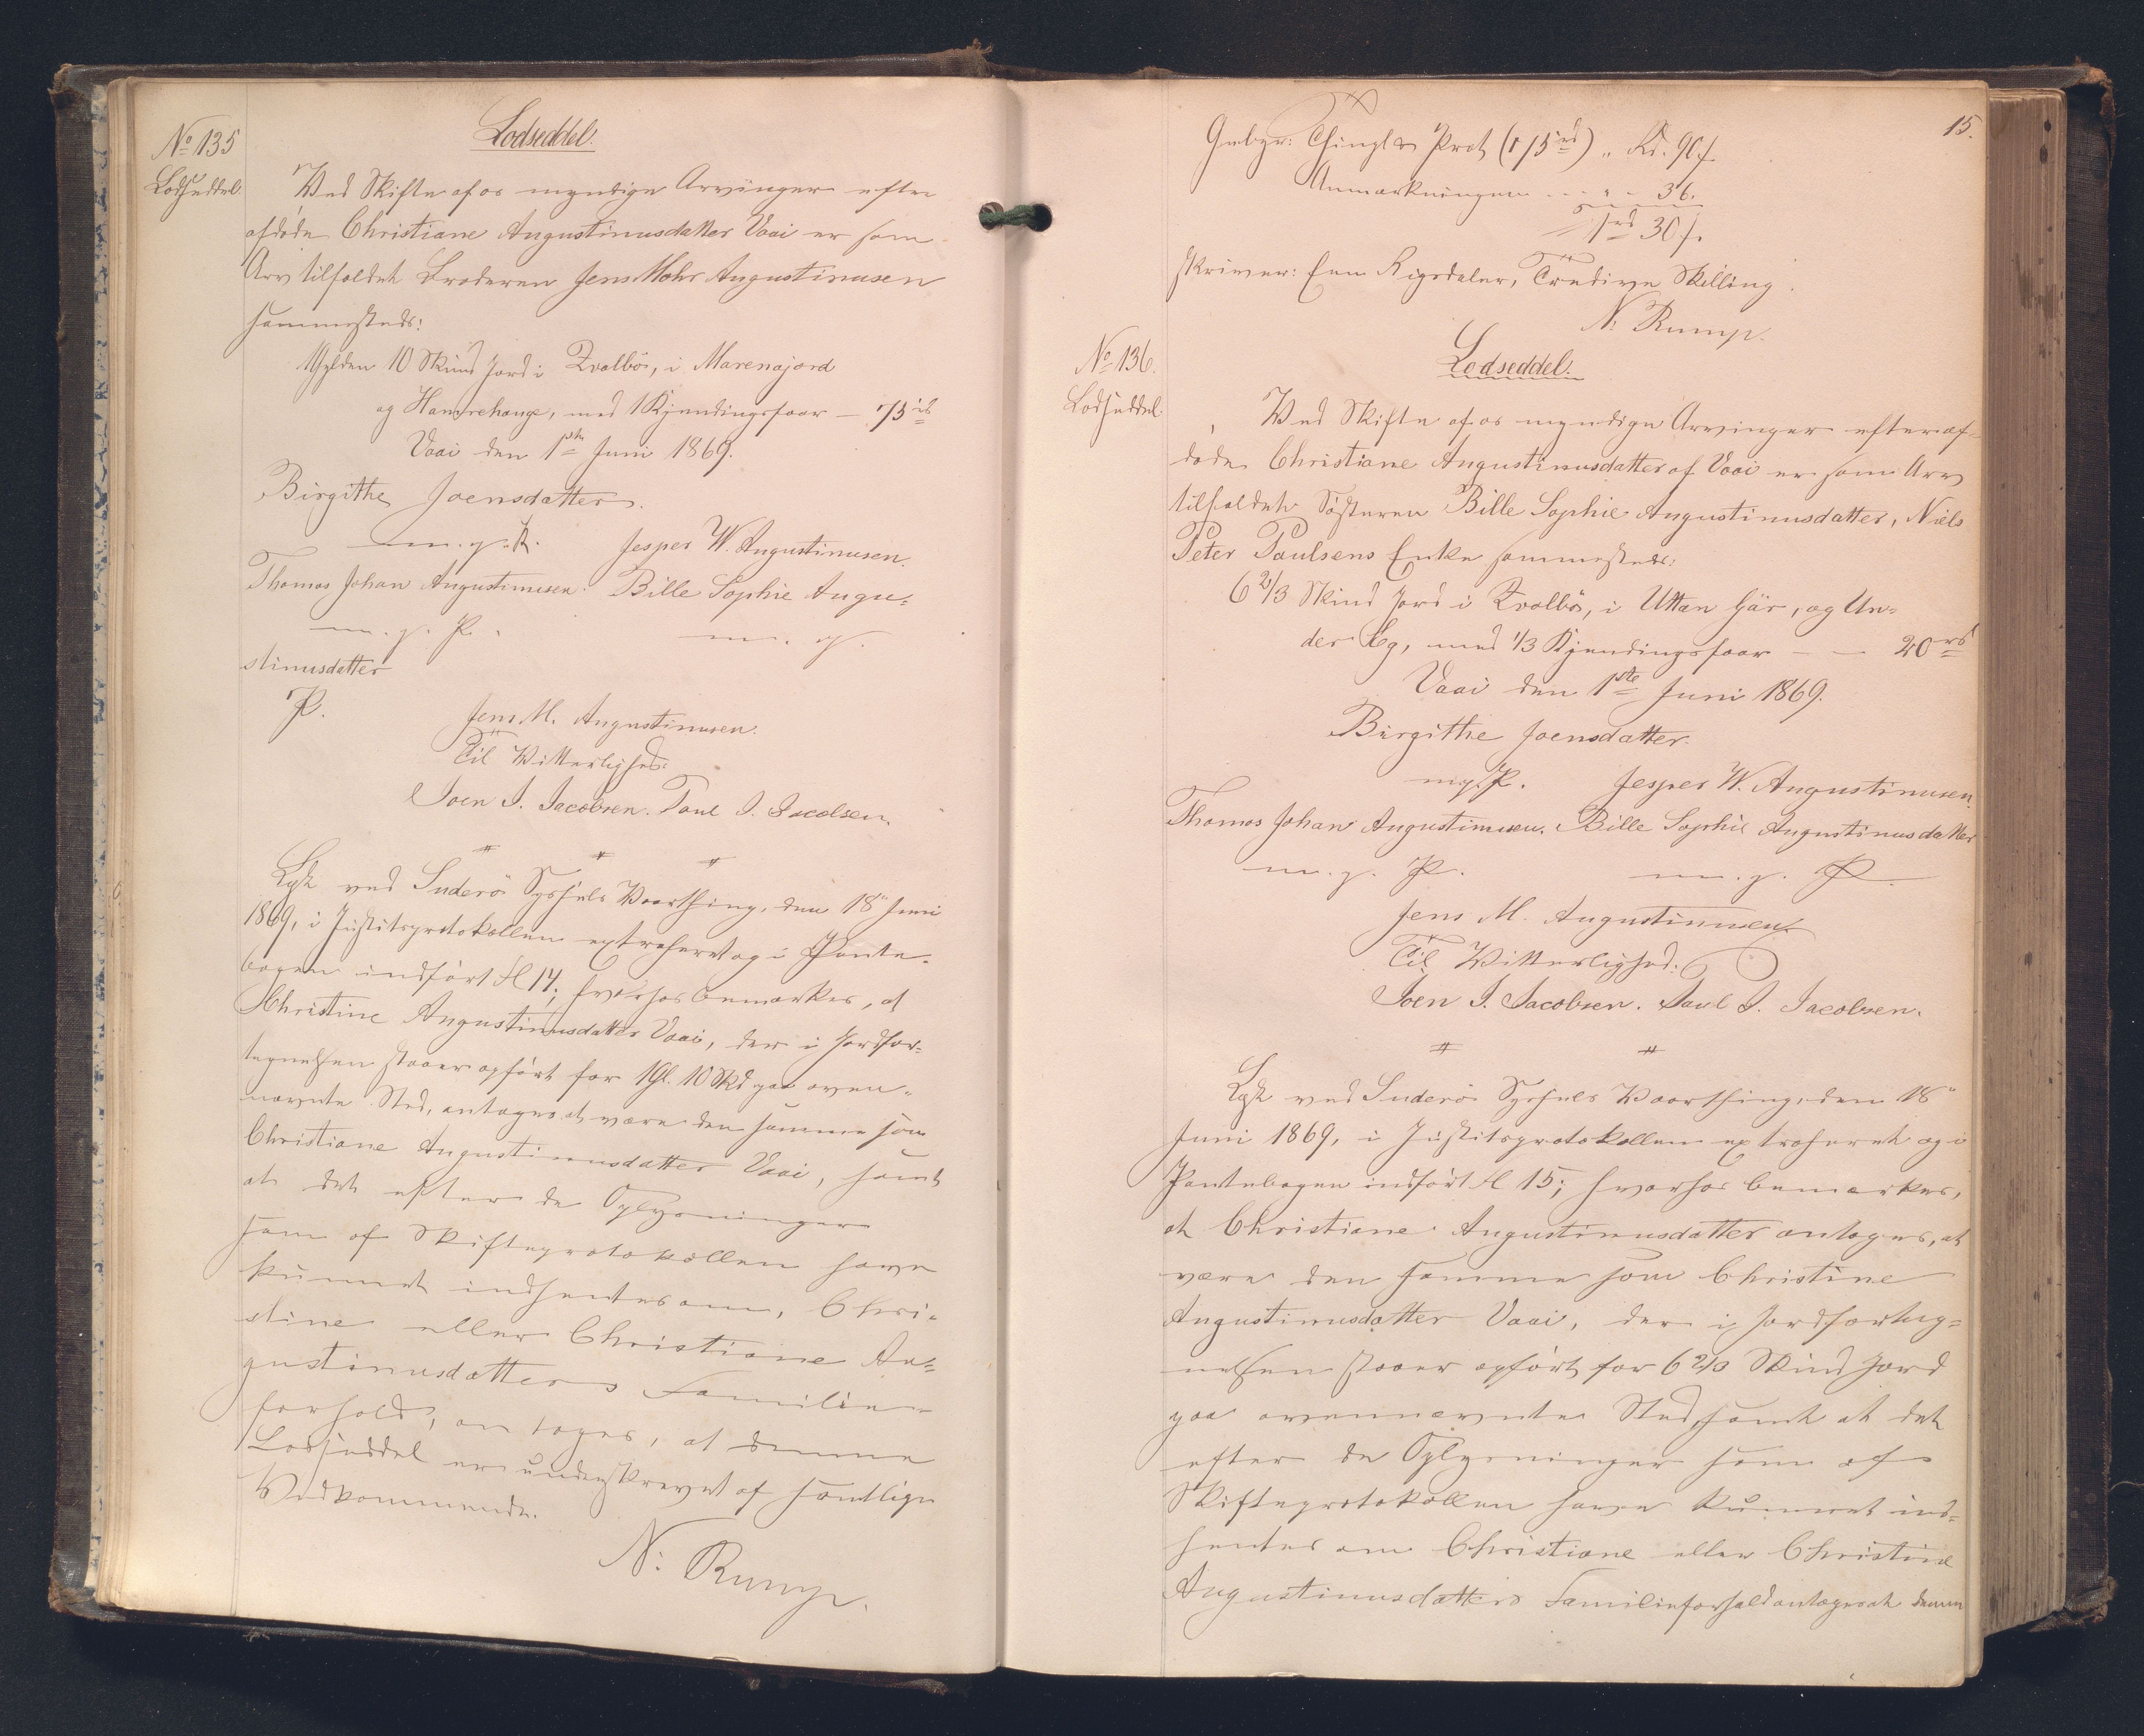 No 135
Lodseddel.
Lodseddel.
Ved Skifte af os myndige Arvinger efter
afdøde Christiane Augustinusdatter Vaai er som
Arv tilfaldet Broderen Jens Mohr Augustinusen
sammesteds:
1 Gylden 10 Skind Jord i Qvalbö, i Marenajord
og Hamrehauge, med 1 Kjendingsfaar — 75 rd
Vaai den 1ste Juni 1869.
Birgithe Joensdatter.
m. p. P. Jesper W. Augustinusen.
Thomas Johan Augustinusen. Bille Sophie Augu-
m. p. P. m. p.
stinusdatter
P.
Jens M. Augustinusen.
Til Vitterlighed:
Joen J. Jacobsen. Poul J. Jacobsen.
Læst ved Suderö Syssels Vaarthing, den 18" Juni
1869, i Justitsprotokollen extraheret og i Pante-
bogen indført fol 14; hvorhos bemærkes, at
Christine Augustinusdatter Vaai, der i Jordfor-
tegnelsen staaer opført for 1 Gl. 10 Skd paa oven-
nævnte Sted, antages at være den samme som
Christiane Augustinusdatter Vaai, samt
at det efter de Oplysninger
som af Skifteprotokollen have
kunnet indhentes om, Chri-
stine eller Christiane Au-
gustinusdatters Familie-
forhold, antages, at denne
Lodseddel er underskrevet af samtlige
Vedkommende.
N. Rump.
15.
Gebyr: Thinglæs Prot (75 rd) " Rd. 90 s.
Anmærkningen - - " - 36.
1 rd 30 s.
skriver: Een Rigsdaler, Tredive Skilling.
N. Rump.
No 136.
Lodseddel.
Lodseddel.
Ved Skifte af os myndige Arvinger efter af-
døde Christiane Augustinusdatter af Vaai er som Arv
tilfaldet Søsteren Bille Sophie Augustinusdatter, Niels
Peter Poulsens Enke sammesteds:
6 2/3 Skind Jord i Qvalbö, i Uttan Gär, og Un-
der Eg, med 1/3 Kjendingsfaar — — 20 rd
Vaai den 1ste Juni 1869.
Birgithe Joensdatter.
m.p. P. Jesper W. Augustinusen.
Thomas Johan Augustinusen. Bille Sophie Augustinusdatter
m. p. P. m. p. P.
Jens M. Augustinusen.
Til Vitterlighed:
Joen J. Jacobsen. Poul J. Jacobsen.
Læst ved Suderö Syssels Vaarthing, den 18"
Juni 1869, i Justitsprotokollen extraheret og i
Pantebogen indført fol 15; hvorhos bemærkes,
at Christiane Augustinusdatter antages, at
være den samme som Christine
Augustinusdatter Vaai, der i Jordforteg-
nelsen staaer opført for 6 2/3 Skind Jord
paa ovennævnte Sted, samt at det
efter de Oplysninger som af
Skifteprotokollen have kunnet ind-
hentes om Christiane eller Christine
Augustinusdatters Familieforhold antages at denne